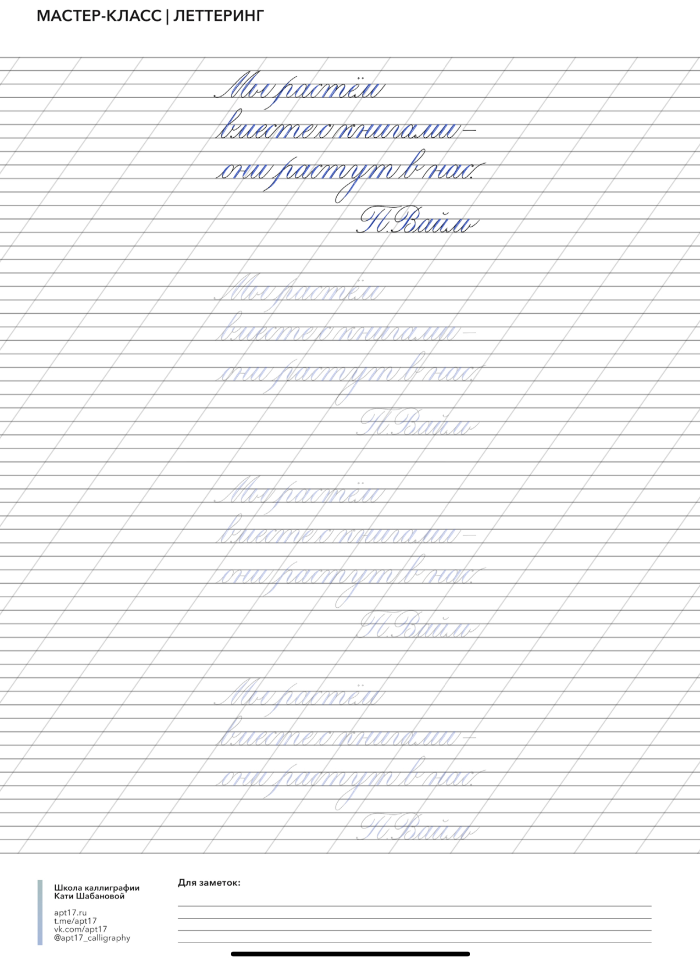 МАСТЕР-КЛАСС | ЛЕТТЕРИНГ
Мы растём
вместе с книгами –
они растут в нас.
П. Вайль
Мы растём
вместе с книгами –
они растут в нас.
П. Вайль
Мы растём
вместе с книгами –
они растут в нас.
П. Вайль
Мы растём
вместе с книгами –
они растут в нас.
П. Вайль
Школа каллиграфии
Кати Шабановой
apt17.ru
t.me/apt17
vk.com/apt17
@apt17_calligraphy
Для заметок: